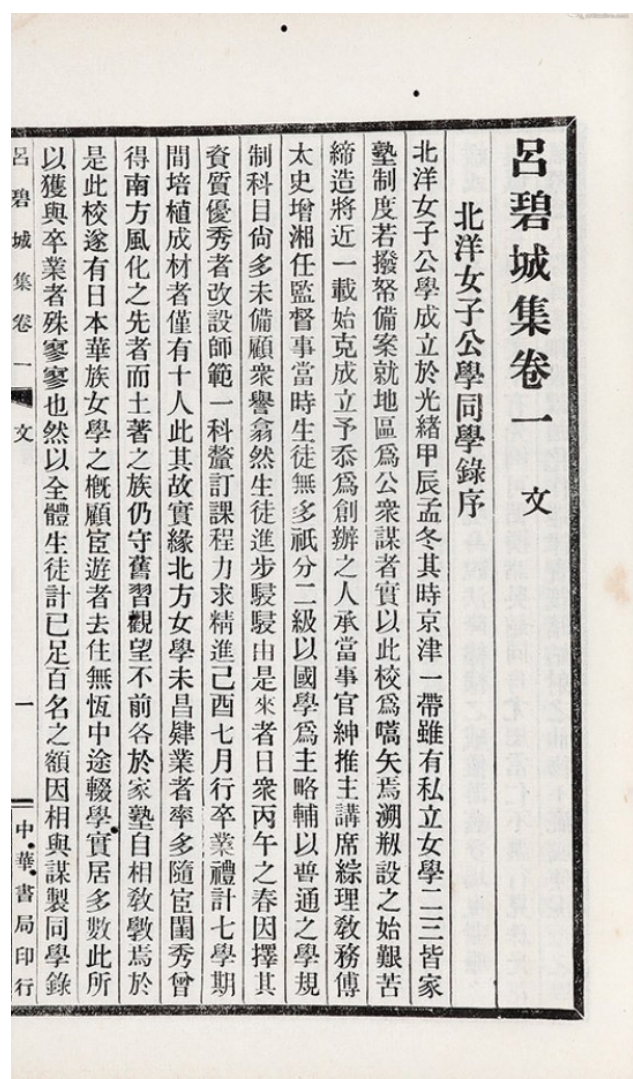 呂碧城集卷一 文
北洋女子公學同學錄序
北洋女子公學成立於光緒甲辰孟冬其時京津一帶雖有私立女學二三皆家
塾制度若撥帑備案就地區爲公衆謀者實以此校爲嚆矢焉溯剏設之始艱苦
締造將近一載始克成立予忝爲創辦之人承當事官紳推主講席綜理敎務傅
太史增湘任監督事當時生徒無多祇分二級以國學爲主略輔以普通之學規
制科目尙多未備顧衆譽翕然生徒進步駸駸由是來者日衆丙午之春因擇其
資質優秀者改設師範一科釐訂課程力求精進己酉七月行卒業禮計七學期
間培植成材者僅有十人此其故實緣北方女學未昌肄業者率多隨宦閨秀曾
得南方風化之先者而土著之族仍守舊習觀望不前各於家塾自相敎斅焉於
是此校遂有日本華族女學之槪顧宦遊者去住無恆中途輟學實居多數此所
以獲與卒業者殊寥寥也然以全體生徒計已足百名之額因相與謀製同學錄
呂碧城集卷一 文 一 中華書局印行